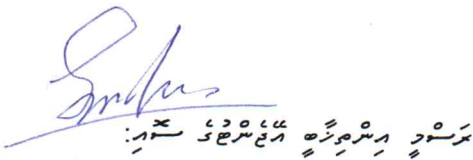 ރަސްމީ އިންތިޚާބީ އޭޖެންޓުގެ ސޮއި: